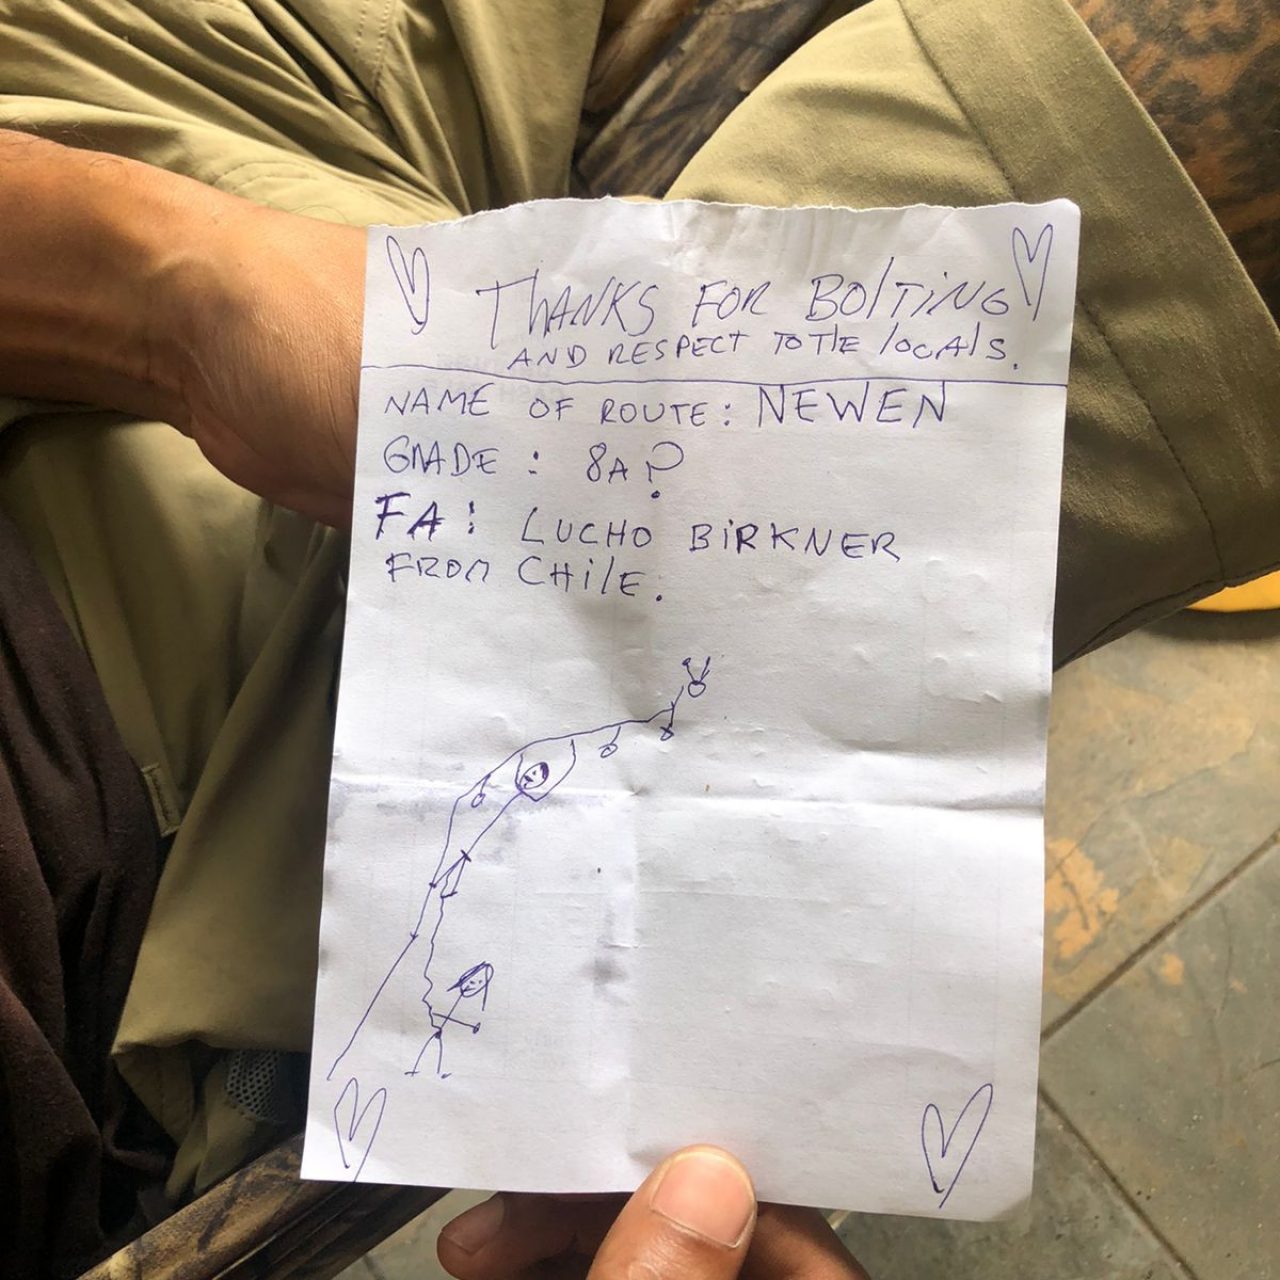 THANKS FOR BOlTiNG
AND RESPECT TO THE locAlS.
NAME OF ROUTE: NEWEN
GRADE: 8A?
FA: LUCHO BiRKNER
FROM CHilE.